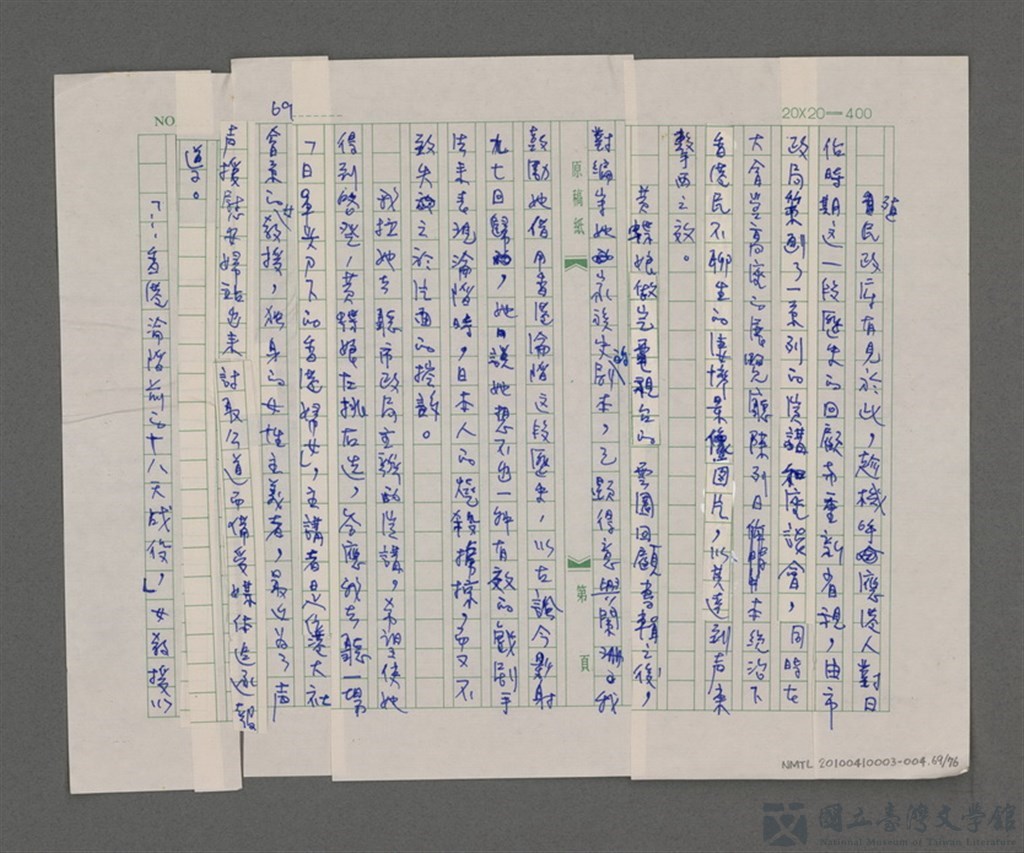 NO
69
20X20=400
殖民政府有見於此，趁機呼應港人對日
佔時期這一段歷史的回顧亦重新省視，由市
政局策劃了一系列的演講和座談會，同時在
大會堂高座的展覽廳陳列日本統治下
香港民不聊生的情景圖片，以其達到声東
擊西之效。
黃蝶娘做完電視台的雲園回顧專輯之後，
對編寫她家族史的劇本，已顯得意興闌珊，我
鼓勵她借用香港淪陷這段歷史，以古諭今影射
九七回歸，她說她想不出一種有效的戲劇手
法來表現淪陷時，日本人的燒殺擄掠，而又不
致失之於片面的控訴。
我拉她去聽市政局主辦的演講，希望使她
得到啓發，黃蝶娘左挑右選，答應我去聽一場
「日軍尖刀下的香港婦女」，主講者是港大社
會系的女教授，獨身的女性主義者，最近為了声
声援慰安婦站出來討取公道而備受媒体追逐報
導。
「……香港淪陷前的十八天戰役，」女教授以
原稿紙
第 頁
NMTL 20100410003-004.69/76
國立臺灣文學館
National Museum of Taiwan Literature